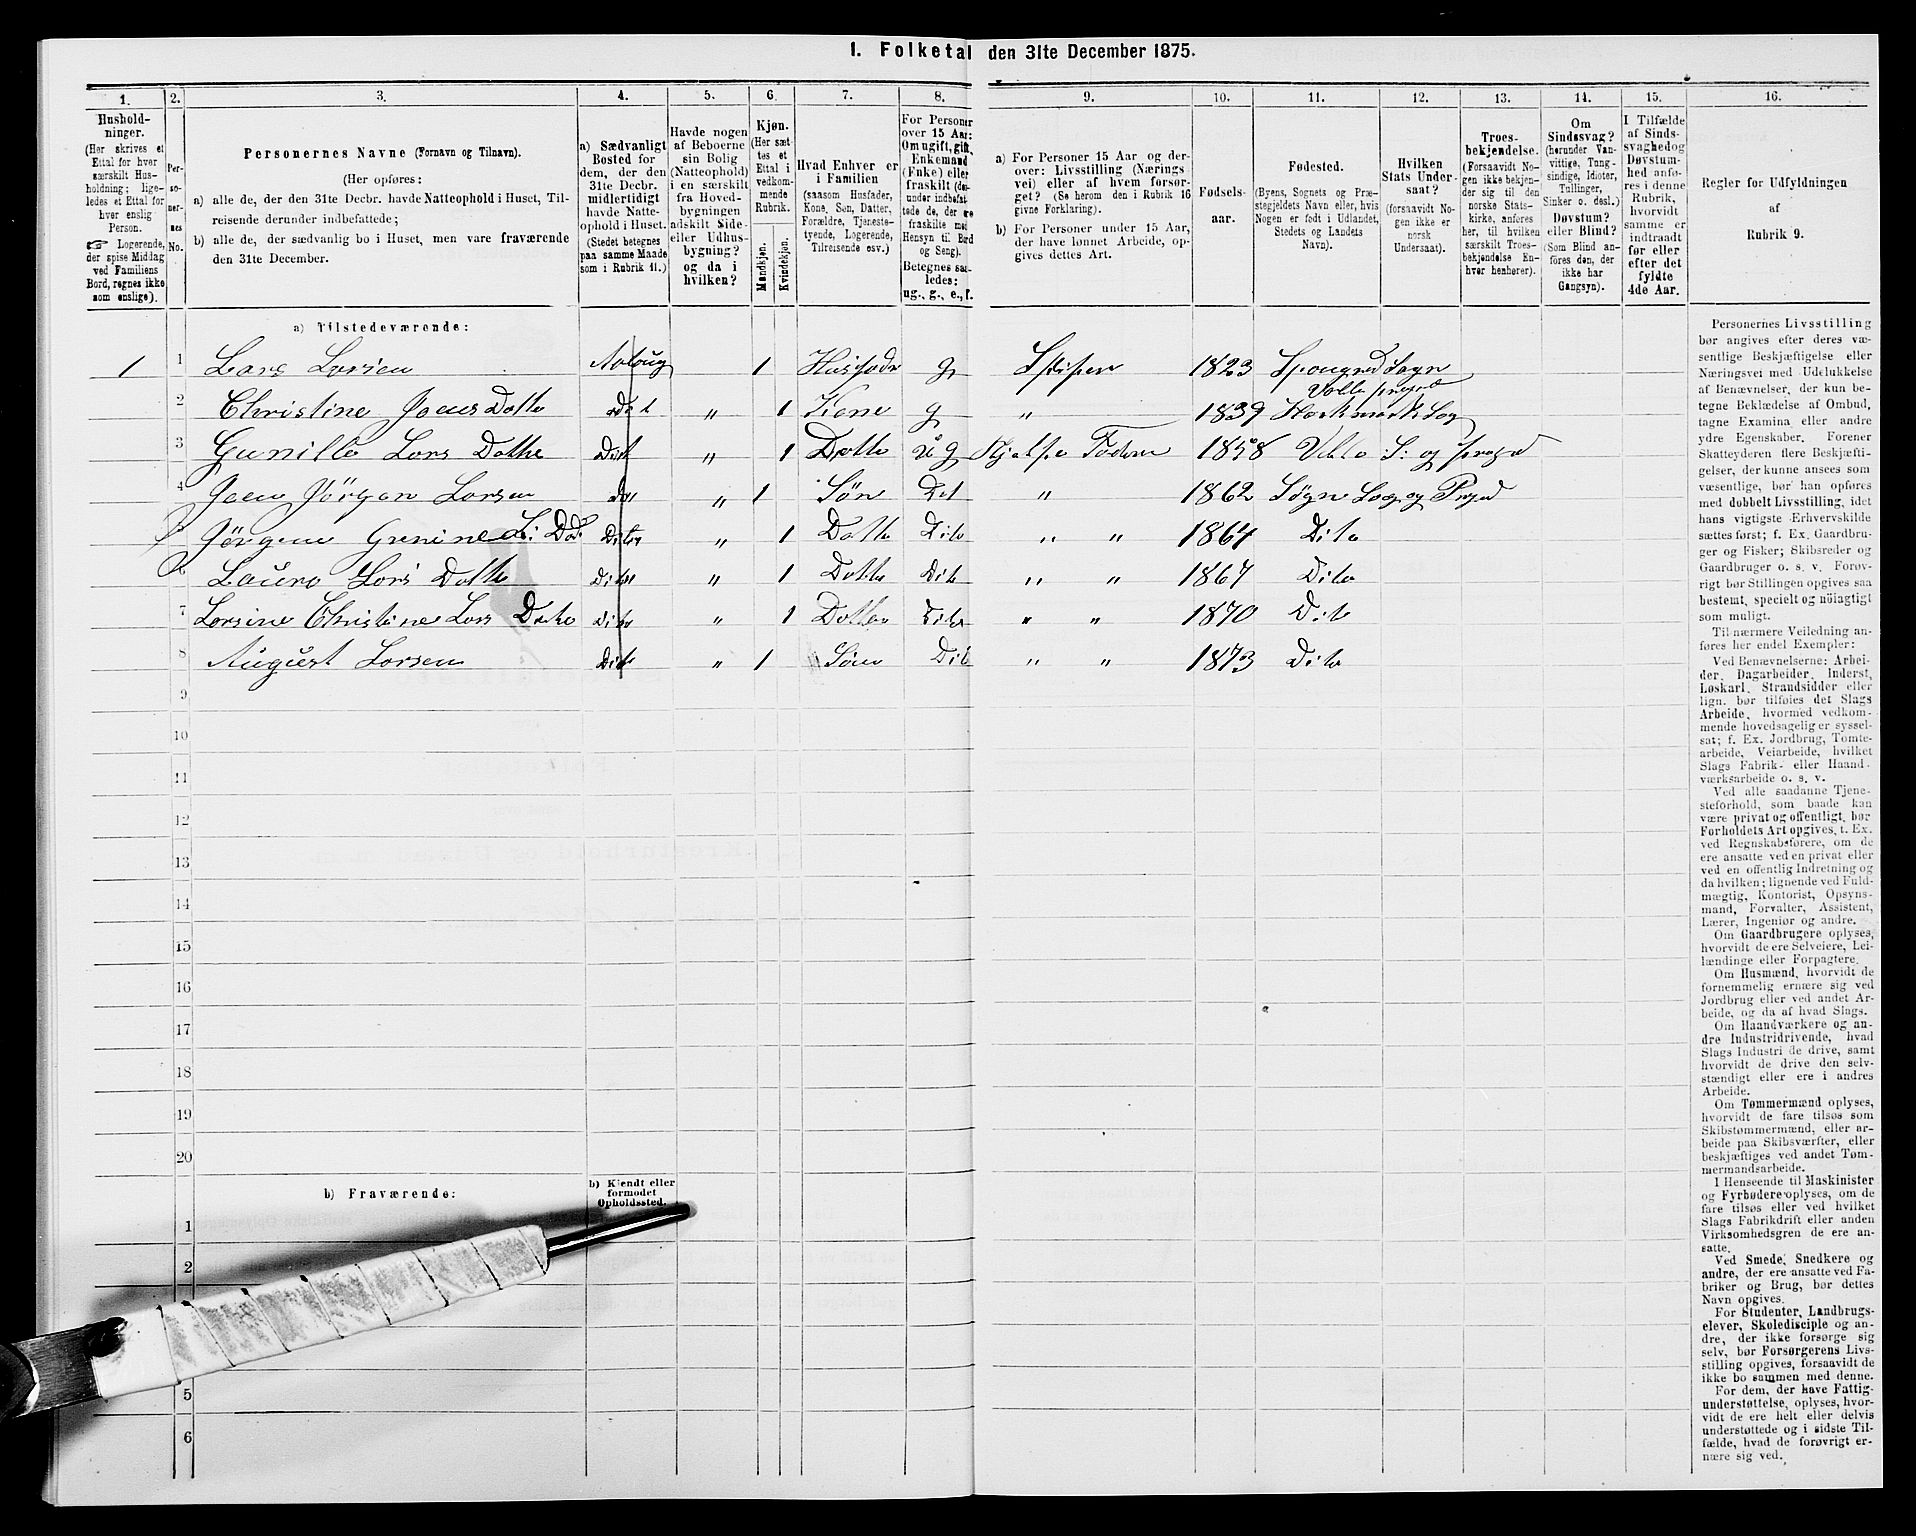 1. Folketal den 31te December 1875.
1.
2.
3.
4.
5.
6.
7.
8.
9.
10.
11.
12.
13.
14.
15.
16.
Hushold-
ninger.
(Her skrives et
Ettal for hver
særskilt Hus-
holdning; lige-
ledes et Ettal for
hver enslig
Person.
☞ Logerende,
der spise Middag
ved Familiens
Bord, regnes ikke
som enslige).
Per-
so-
ner-
nes
No.
Personernes Navne (Fornavn og Tilnavn).
(Her opføres:
a) alle de, der den 31te Decbr. havde Natteophold i Huset, Til-
reisende derunder indbefattede;
b) alle de, der sædvanlig bo i Huset, men vare fraværende
den 31te December.
a) Sædvanligt
Bosted for
dem, der den
31te Decbr.
midlertidigt
havde Natte-
ophold i Huset.
(Stedet betegnes
paa samme Maade
som i Rubrik 11.)
Havde nogen
af Beboerne
sin Bolig
(Natteophold)
i en særskilt
fra Hoved-
bygningen
adskilt Side-
eller Udhus-
bygning?
og da i
hvilken?
Kjøn.
(Her sæt-
tes et
Ettal i
vedkom-
mende
Rubrik.
Mandkjøn.
Kvindekjøn.
Hvad Enhver er
i Familien
(saasom Husfader,
Kone, Søn, Datter,
Forældre, Tjeneste-
tyende, Logerende,
Tilreisende osv.)
For Personer
over 15 Aar:
Om ugift, gift,
Enkemand
(Enke) eller
fraskilt (der-
under indbefat-
tede de, der ere
fraskilte med
Hensyn til Bord
og Seng).
Betegnes saa-
ledes:
ug., g., e., f.
a) For Personer 15 Aar og der-
over: Livsstilling (Nærings
vei) eller af hvem forsør-
get? (Se herom den i Rubrik 16
givne Forklaring).
b) For Personer under 15 Aar,
der have lønnet Arbeide, op-
gives dettes Art.
Fødsels-
aar.
Fødested.
(Byens, Sognets og Præ-
stegjeldets Navn eller, hvis
Nogen er født i Udlandet,
Stedets og Landets
Navn).
Hvilken
Stats Under-
saat?
(forsaavidt No-
gen ikke er
norsk
Undersaat).
Troes-
bekjendelse.
(Forsaavidt No-
gen ikke bekjen-
der sig til den
norske Stats-
kirke, anføres
her, til hvilken
særskilt Troes-
bekjendelse En-
hver henhører).
Om
Sindssvag?
(herunder Van-
vittige, Tung-
sindige, Idioter,
Tullinger,
Sinker o. desl.)
Døvstum?
eller Blind?
(Som Blind an-
føres den, der
ikke har
Gangsyn).
I Tilfælde
af Sinds-
svaghed og
Døvstum-
hed anfø-
res i denne
Rubrik,
hvorvidt
samme er
indtraadt
før eller
efter det
fyldte
4de Aar.
Regler for Udfyldningen
af
Rubrik 9.
a) Tilstedeværende:
1 1 Lars Larsen 1 Husfader g 1823 Sogn
Valle
2 Christine Datte " 1 Kone g " 1839
3 Lars Datte Dito " 1 Datte u g 1858 Valle S: og
4 Jørgen Larsen " 1 Søn Dit " 1862 Søgne Sog og
5 Dito " 1 Datte Dito " " 1864 Dito
6 Lars Datte Dito " 1 Datte Dito " " 1867 Dito
7 Larsine Christine Lars Datte Dito " 1 Datter Dito " " 1870 Dito
8 August Larsen Dito " 1 Søn Dito " " 1873 Dito
9
10
11
12
13
14
15
16
17
18
19
20
b) Fraværende:
b) Kjendt eller
formodet
Opholdssted.
1
2
5
6
Personernes Livsstilling
bør angives efter deres væ-
sentlige Beskjæftigelse eller
Næringsvei med Udelukkelse
af Benævnelser, der kun be-
tegne Beklædelse af Ombud,
tagne Examina eller andre
ydre Egenskaber. Forener
Skatteyderen flere Beskjæfti-
gelser, der kunne ansees som
væsentlige, bør han opføres
med dobbelt Livsstilling, idet
hans vigtigste Erhvervskilde
sættes først; f. Ex. Gaardbru-
ger og Fisker; Skibsreder og
Gaardbruger o. s. v. Forøv-
rigt bør Stillingen opgives saa
bestemt, specielt og nöiagtigt
som muligt.
Til nærmere Veiledning an-
føres her endel Exempler:
Ved Benævnelserne: Arbei-
der, Dagarbeider, Inderst,
Løskarl, Strandsidder eller
lign. bør tilføies det Slags
Arbeide, hvormed vedkom-
mende hovedsagelig er syssel-
sat; f. Ex. Jordbrug, Tomte-
arbeide, Veiarbeide, hvilket
Slags Fabrik- eller Haand-
værksarbeide o. s. v.
Ved alle saadanne Tjene-
steforhold, som baade kan
være privat og offentligt, bør
Forholdets Art opgives, t. Ex.
ved Regnskabsførere, om de
ere ansatte ved en privat eller
ved en offentlig Indretning og
da hvilken; lignende ved Fuld-
mægtig, Kontorist, Opsyns-
mand, Forvalter, Assistent,
Lærer, Ingeniør og andre.
Om Gaardbrugere oplyses,
hvorvidt de ere Selveiere, Lei-
lændinge eller Forpagtere.
Om Husmænd, hvorvidt de
fornemmelig ernære sig ved
Jordbrug eller ved andet Ar-
beide, og da af hvad Slags.
Om Haandværkere og an-
dre Industridrivende, hvad
Slags Industri de drive, samt
hvorvidt de drive den selv-
stændigt eller ere i andres
Arbeide.
Om Tømmermænd oplyses,
hvorvidt de fare tilsøs som
Skibstømmermænd, eller ar-
beide paa Skibsværfter, eller
beskjæftiges ved andet Tøm-
mermandsarbeide.
I Henseende til Maskinister
og Fyrbødere oplyses, om de
fare tilsøs eller ved hvilket
Slags Fabrikdrift eller anden
Virksomhedsgren de ere an-
satte.
Ved Smede, Snedkere og
andre, der ere ansatte ved Fa-
briker og Brug, bør dettes
Navn opgives.
For Studenter, Landbrugs-
elever, Skoledisciple og an-
dre, der ikke forsørge sig
selv, bør Forsørgerens Livs-
stilling opgives, forsaavidt de
ikke bo sammen med denne.
For dem, der have Fattig-
understøttelse, oplyses, hvor-
vidt de ere helt eller delvis
understøttede og i sidste Til-
fælde, hvad de forøvrigt er-
nære sig ved.